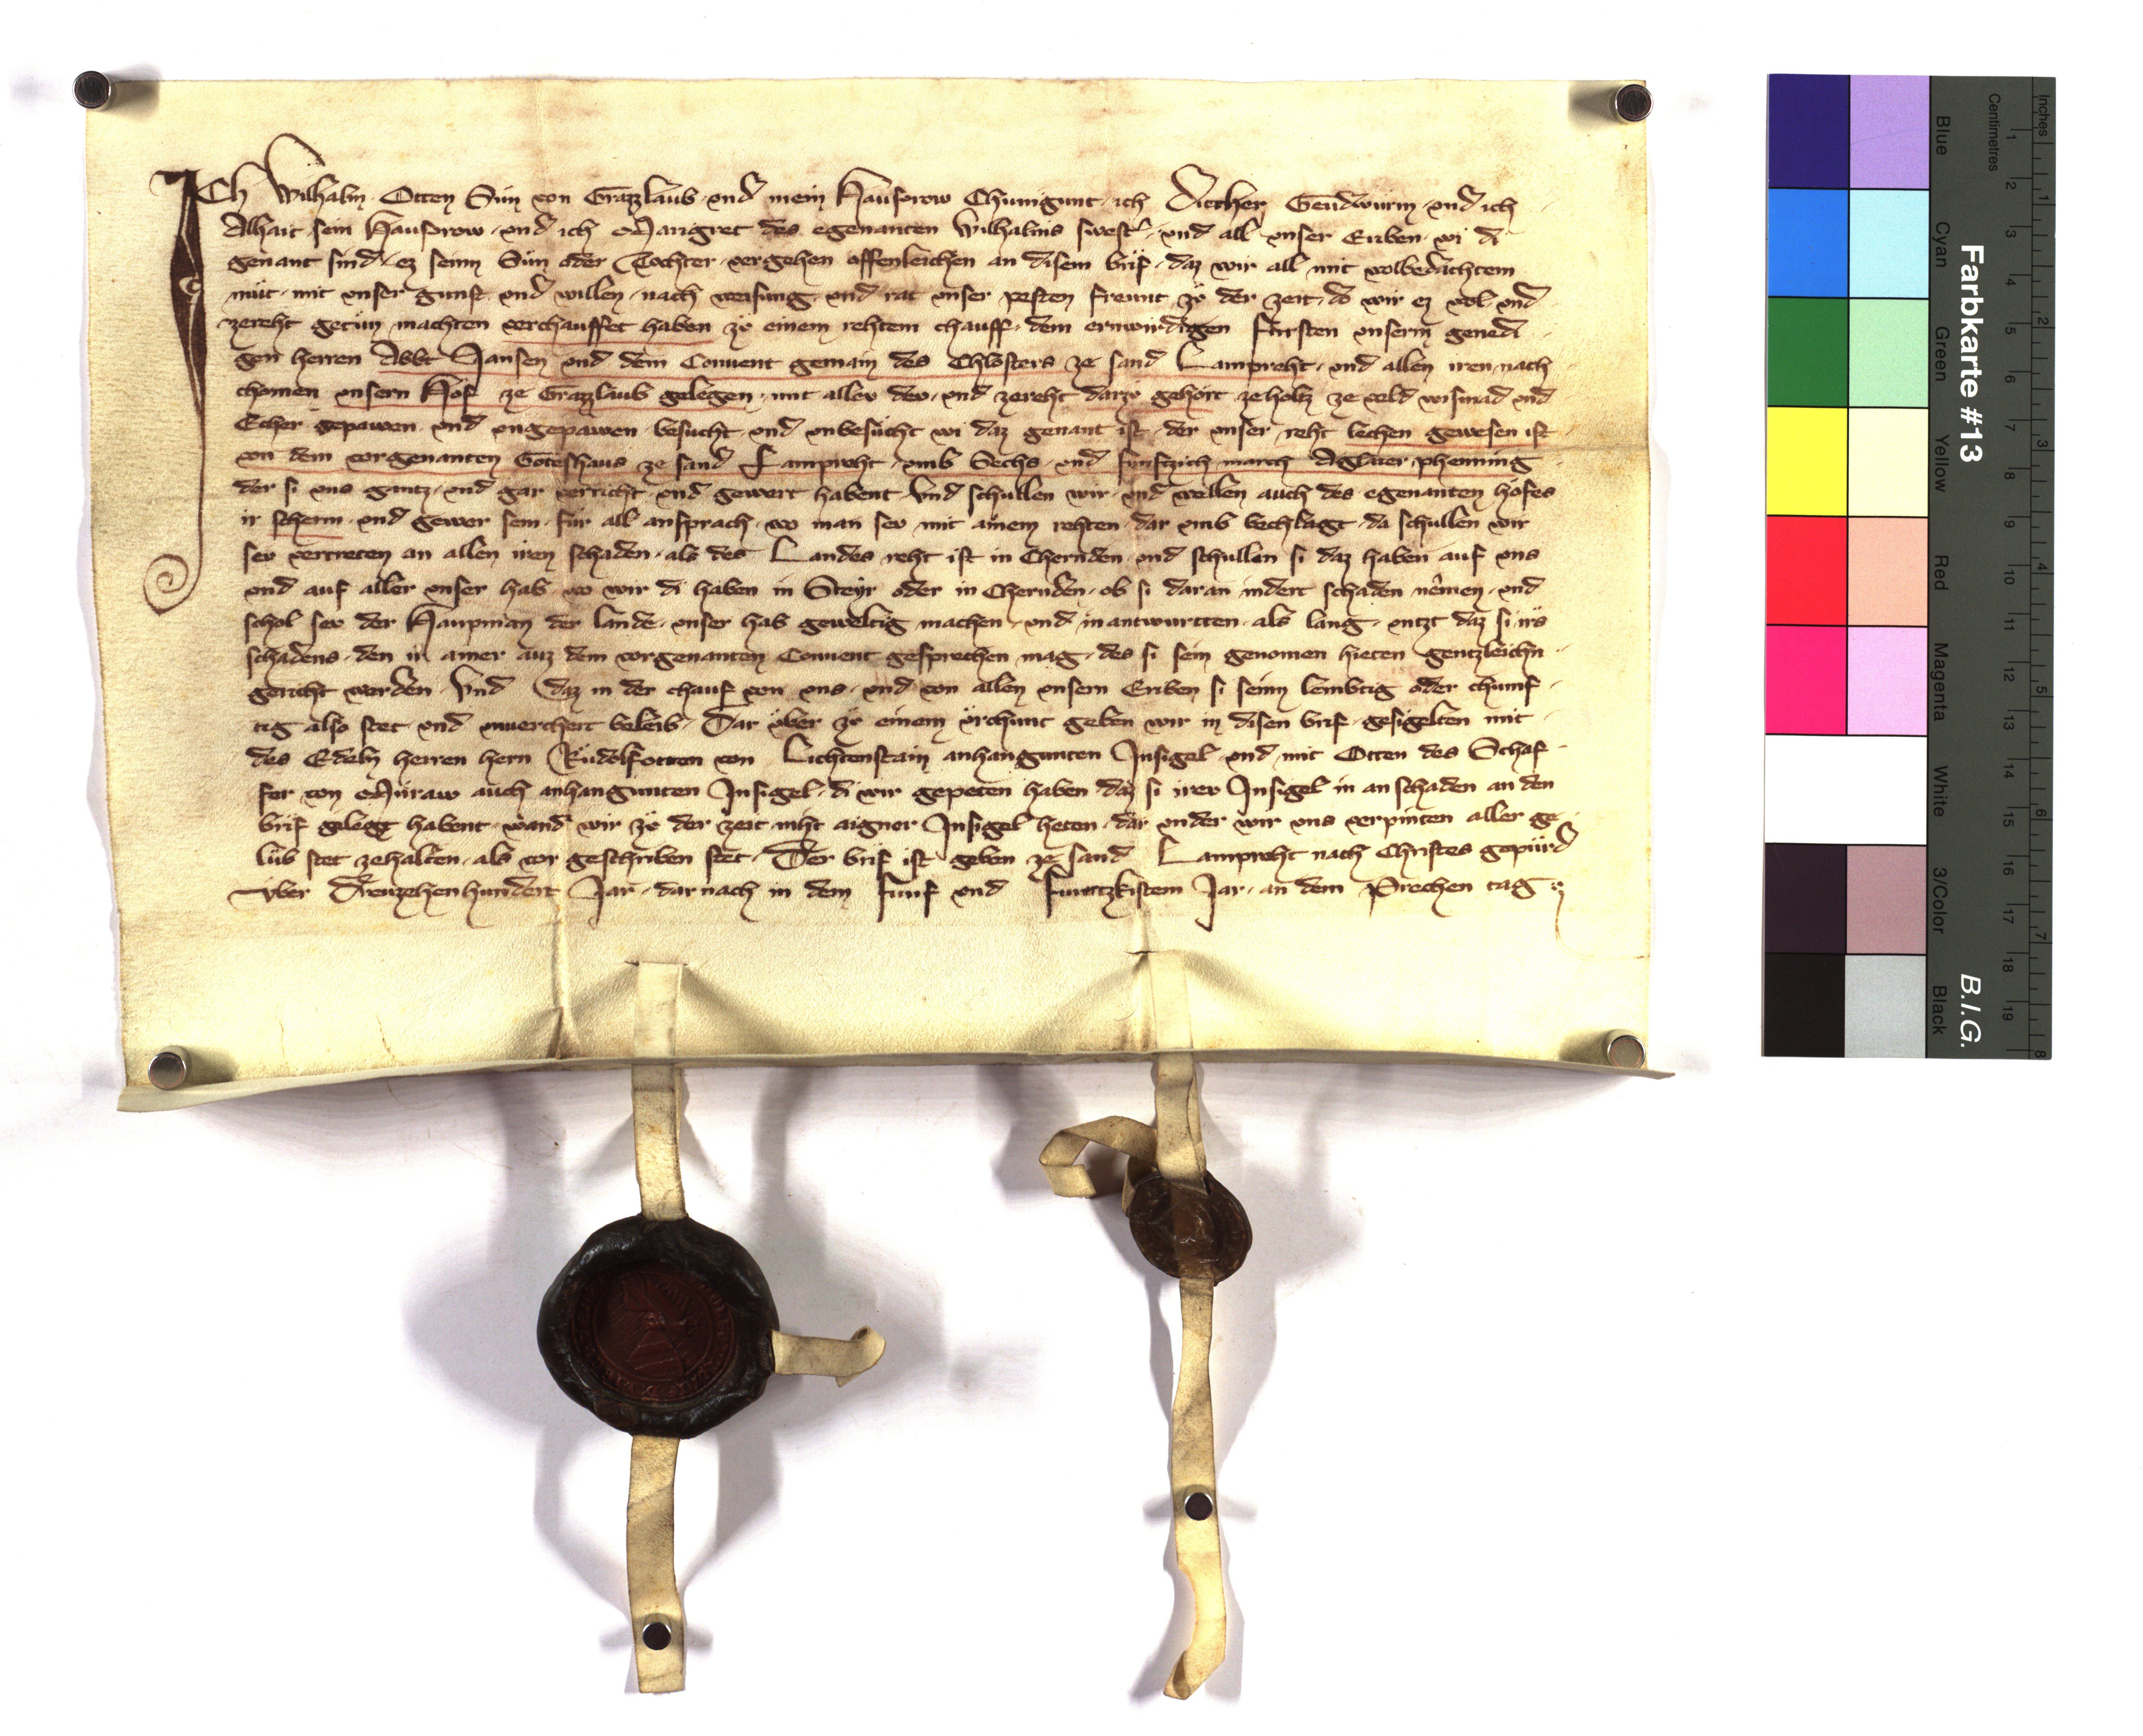 ICh Wilhalm Otten Sún von Grazzlaub und mein Hausvrow Chunigunt ich Diether Gendwurm und ich
Alhait sein Hausvrow und ich Margret des egenanten Wilhalms swest und all unser Eriben wi di
genant sind ez seinn Sún oder Tochter vergehen offenleichen an disem brif daz wir all mit volbedachtem
mút mit unser gunst und willen nach weisung und rat unser pesten freunt zů der zeit do wir ez wol und
zereht getůn machten verchauffet haben zů einem rehtem chauff dem erwirdigen fursten unserm genedi
gen herren Abbt Jansen und dem Convent gemain des Chlosters ze sand Lampreht und allen iren nach
chomen unsern Hof ze Grazzlaub gelegen mit aller dev und zereht darzů gehört ze holtz ze veld wismad und
Echer gepawen und ungepawen besucht und unbesucht wi daz genant ist der unser reht lechen gewesen ist
von dem vorgenanten Goteshaus ze sand Lampreht umb Sechs und funftzich march Aglaier phenning
der si uns gantz und gar verricht und gewert habent Und schullen wir und wellen auch des egenanten hofes
ir scherm und gewer sein für all ansprach wo man sev mit ainem rehten dar umb bechlagt da schullen wir
sev vertreten an allen iren schaden als des Landes reht ist in Chernden und schullen si daz haben auf uns
und auf aller unser hab wo wir di haben in Steyr oder in Chernden ob si daran indert schaden nêmen und
schol sev der Haupman der lande unser hab geweltig machen und in antwurtten als lang untzt daz si irs
schadens den in ainer auz dem vorgenanten Convent gesprechen mag des si sein genomen hieten gentzleichn
gericht werden Und daz in der chauf von uns und von allen unsern Eriben si seinn lembtig oder chumf
tig also stet und unverchert beleib Dar über zů einem ürchunt geben wir in disen brif gesigelten mit
des Edeln herren hern Růdolfotten von Lichtenstain anhangunten Insigel und mit Otten des Schaf
fer von Můraw auch anhangunten Insigel di wir gepeten haben daz si irev Insigel in an schaden an den
brif gelegt habent wand wir zů der zeit niht aigner Insigel heten dar under wir uns verpinten aller ge
lüb stet zehalten als vor geschriben stet Der brif ist geben ze sand Lampreht nach Christes gepürd
Vber Dreuzehenhundert Jar dar nach in dem funf und funtzkistem Jar an dem Prechen tag
Farbkarte #13
B.I.G.
Inches
Centimetres
1 2 3 4 5 6 7 8
1 2 3 4 5 6 7 8 9 10 11 12 13 14 15 16 17 18 19
Blue
Cyan
Green
Yellow
Red
Magenta
White
3/Color
Black